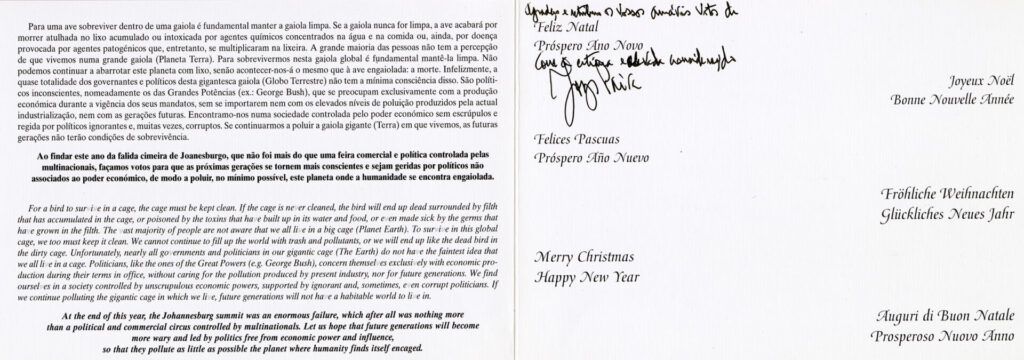 Para uma ave sobreviver dentro de uma gaiola é fundamental manter a gaiola limpa. Se a gaiola nunca for limpa, a ave acabará por
morrer atulhada no lixo acumulado ou intoxicada por agentes químicos concentrados na água e na comida ou, ainda, por doença
provocada por agentes patogénicos que, entretanto, se multiplicaram na lixeira. A grande maioria das pessoas não tem a percepção
de que vivemos numa grande gaiola (Planeta Terra). Para sobrevivermos nesta gaiola global é fundamental mantê-la limpa. Não
podemos continuar a abarrotar este planeta com lixo, senão acontecer-nos-á o mesmo que à ave engaiolada: a morte. Infelizmente, a
quase totalidade dos governantes e políticos desta gigantesca gaiola (Globo Terrestre) não tem a mínima consciência disso. São políti-
cos inconscientes, nomeadamente os das Grandes Potências (ex.: George Bush), que se preocupam exclusivamente com a produção
económica durante a vigência dos seus mandatos, sem se importarem nem com os elevados níveis de poluição produzidos pela actual
industrialização, nem com as gerações futuras. Encontramo-nos numa sociedade controlada pelo poder económico sem escrúpulos e
regida por políticos ignorantes e, muitas vezes, corruptos. Se continuarmos a poluir a gaiola gigante (Terra) em que vivemos, as futuras
gerações não terão condições de sobrevivência.
Ao findar este ano da falida cimeira de Joanesburgo, que não foi mais do que uma feira comercial e política controlada pelas
multinacionais, façamos votos para que as próximas gerações se tornem mais conscientes e sejam geridas por políticos não
associados ao poder económico, de modo a poluir, no mínimo possível, este planeta onde a humanidade se encontra engaiolada.
For a bird to survive in a cage, the cage must be kept clean. If the cage is never cleaned, the bird will end up dead surrounded by filth
that has accumulated in the cage, or poisoned by the toxins that have built up in its water and food, or even made sick by the germs that
have grown in the filth. The vast majority of people are not aware that we all live in a big cage (Planet Earth). To survive in this global
cage, we too must keep it clean. We cannot continue to fill up the world with trash and pollutants, or we will end up like the dead bird in
the dirty cage. Unfortunately, nearly all governments and politicians in our gigantic cage (The Earth) do not have the faintest idea that
we all live in a cage. Politicians, like the ones of the Great Powers (e.g. George Bush), concern themselves exclusively with economic pro-
duction during their terms in office, without caring for the pollution produced by present industry, nor for future generations. We find
ourselves in a society controlled by unscrupulous economic powers, supported by ignorant and, sometimes, even corrupt politicians. If
we continue polluting the gigantic cage in which we live, future generations will not have a habitable world to live in.
At the end of this year, the Johannesburg summit was an enormous failure, which after all was nothing more
than a political and commercial circus controlled by multinationals. Let us hope that future generations will become
more wary and led by politics free from economic power and influence,
so that they pollute as little as possible the planet where humanity finds itself encaged.
Agradeço e retribuo os vossos amáveis votos de
Feliz Natal
Próspero Ano Novo
Com estima e elevada consideração
Jorge
Joyeux Noël
Bonne Nouvelle Année
Felices Pascuas
Próspero Año Nuevo
Fröhliche Weihnachten
Glückliches Neues Jahr
Merry Christmas
Happy New Year
Auguri di Buon Natale
Prosperoso Nuovo Anno